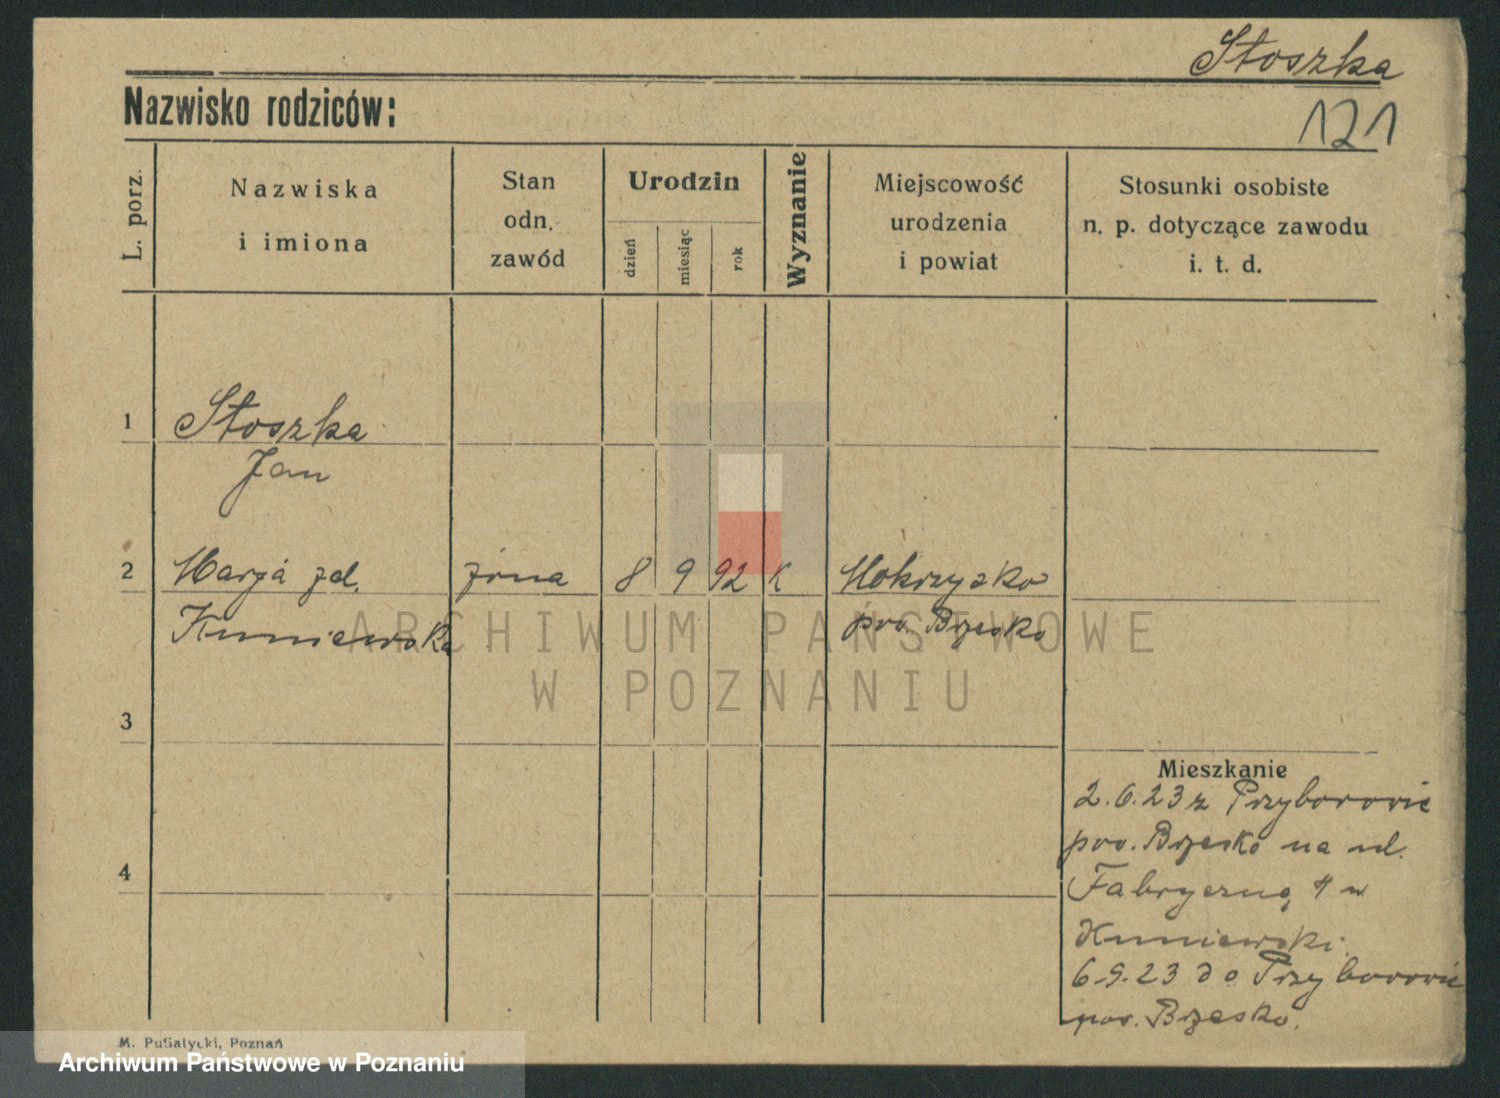 Stoszka
Nazwisko rodziców:
121
L. porz.
Nazwiska
i imiona
Stan
odn.
zawód
Urodzin
dzień
miesiąc
rok
Wyznanie
Miejscowość
urodzenia
i powiat
Stosunki osobiste
n. p. dotyczące zawodu
i. t. d.
1 Stoszka
Jan
2 Marja zd. żona 8 9 92 K Mokrzysko
pow. Brzesko
ARCHIWUM PAŃSTWOWE
W POZNANIU
3
Mieszkanie
2.6.23 z Przyborowic
pow. Brzesko na ul.
4
Fabryczną 4 w
6.9.23 do Przyborowic
pow. Brzesko.
M. Putiatycki, Poznań
Archiwum Państwowe w Poznaniu